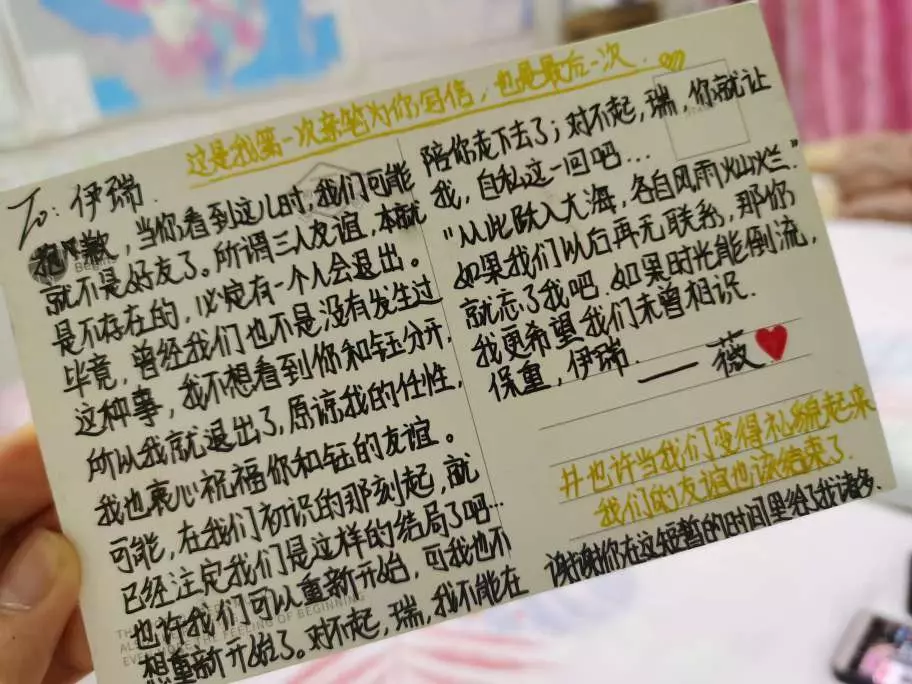 这是我第一次亲笔为你写信，也是最后一次.
To: 伊瑞.
抱歉，当你看到这儿时，我们可能
就不是好友了。所谓三人友谊，本就
是不存在的，必定有一个人会退出。
毕竟，曾经我们也不是没有发生过
这种事，我不想看到你和钰分开，
所以我就退出了，原谅我的任性，
我也衷心祝福你和钰的友谊。
可能，在我们初识的那刻起，就
已经注定我们是这样的结局了吧...
也许我们可以重新开始，可我也不
想重新开始了。对不起，瑞，我不能在
陪你走下去了；对不起，瑞，你就让
我，自私这一回吧...
"从此跃入大海，各自风雨灿烂."
如果我们以后再无联系，那你
就忘了我吧.如果时光能倒流，
我更希望我们未曾相识.
保重，伊瑞. ——薇
#也许当我们变得礼貌起来
我们的友谊也该结束了.
谢谢你在这短暂的时间里给了我诸多.
EVER MORE THE FEELING OF BEGINNING